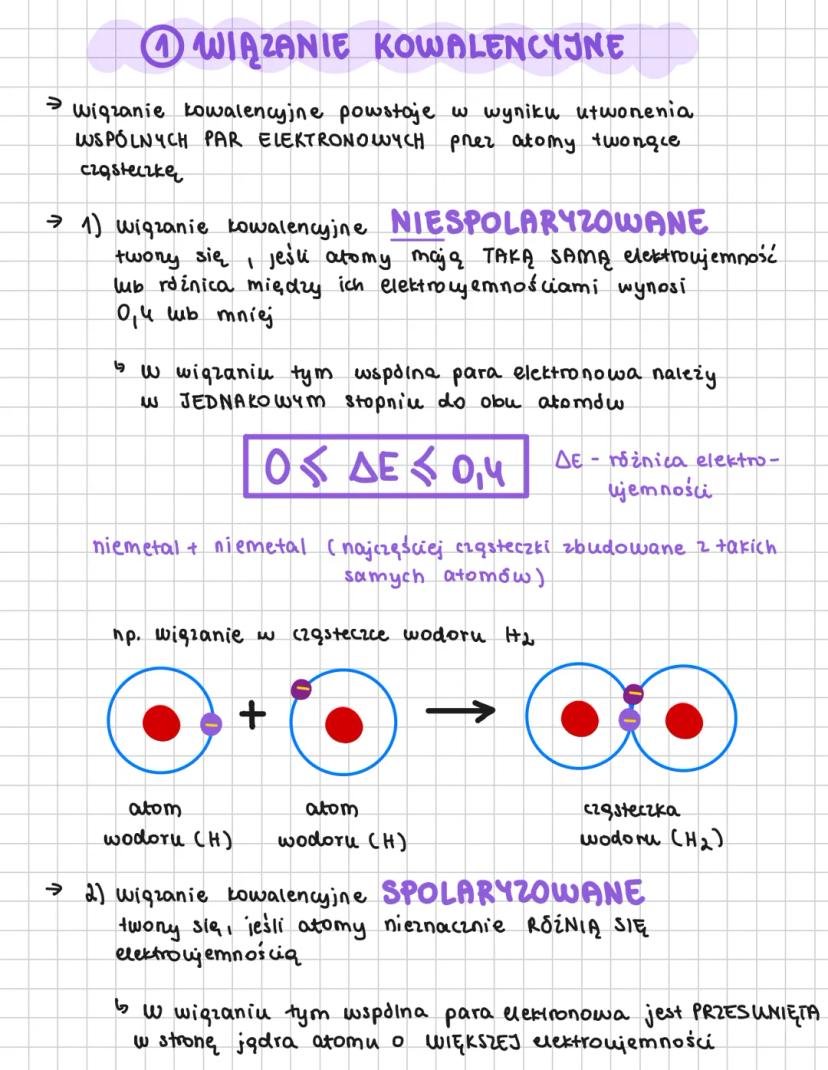 ① WIĄZANIE KOWALENCYJNE
→ wiązanie kowalencyjne powstaje w wyniku utworzenia
WSPÓLNYCH PAR ELEKTRONOWYCH przez atomy tworzące
cząsteczkę
→ 1) wiązanie kowalencyjne NIESPOLARYZOWANE
tworzy się, jeśli atomy mają TAKĄ SAMĄ elektroujemność
lub różnica między ich elektroujemnościami wynosi
0,4 lub mniej
↳ w wiązaniu tym wspólna para elektronowa należy
w JEDNAKOWYM stopniu do obu atomów
0 ⩽ ΔE ⩽ 0,4
ΔE - różnica elektro-
ujemności
niemetal + niemetal (najczęściej cząsteczki zbudowane z takich
samych atomów)
np. wiązanie w cząsteczce wodoru H₂
− + − → − −
atom
wodoru (H)
atom
wodoru (H)
cząsteczka
wodoru (H₂)
→ 2) wiązanie kowalencyjne SPOLARYZOWANE
tworzy się, jeśli atomy nieznacznie RÓŻNIĄ SIĘ
elektroujemnością
↳ w wiązaniu tym wspólna para elektronowa jest PRZESUNIĘTA
w stronę jądra atomu o WIĘKSZEJ elektroujemności